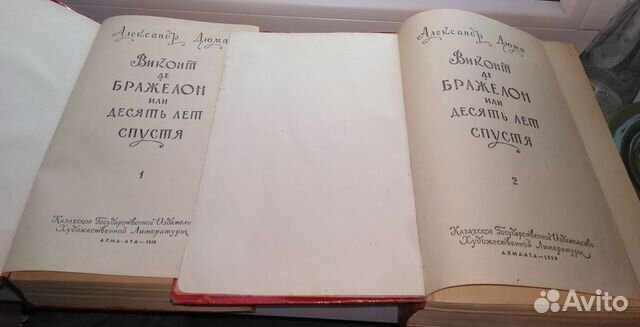 Александр Дюма
Виконт
де
Бражелон
или
десять лет
спустя
1
Казахское Государственное Издательство
Художественной Литературы
АЛМА-АТА — 1959
Александр Дюма
Виконт
де
Бражелон
или
десять лет
спустя
2
Казахское Государственное Издательство
Художественной Литературы
АЛМА-АТА — 1959
Avito